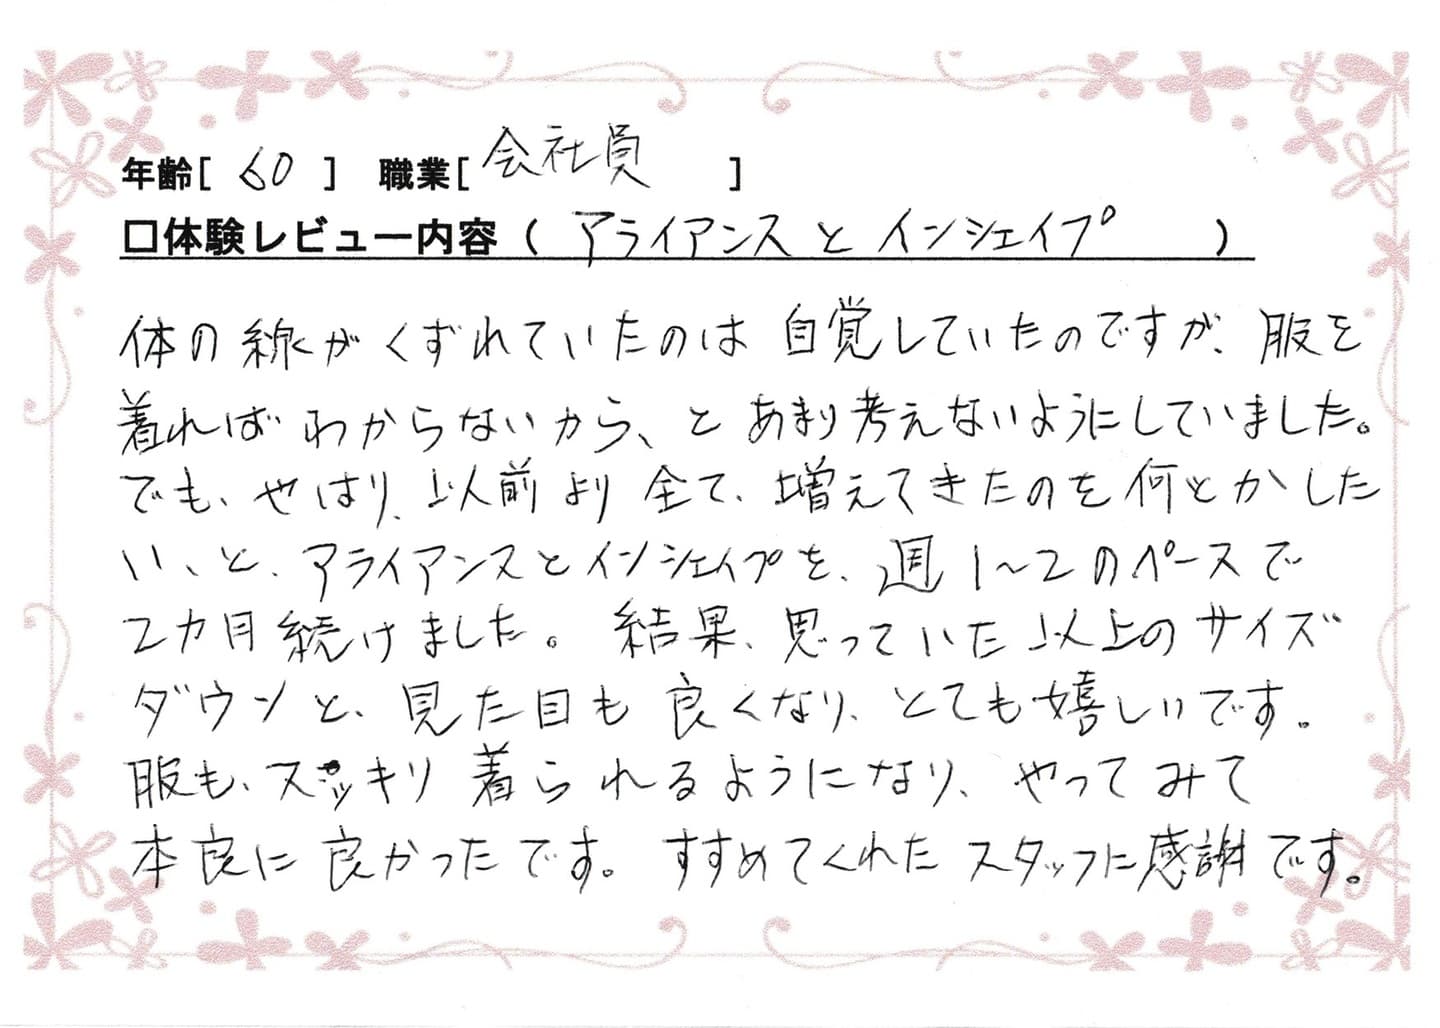 年齢[ 60 ] 職業[ 会社員 ]
□体験レビュー内容 ( アライアンスとインシェイプ )
体の線がくずれていたのは自覚していたのですが、服を
着ればわからないから、とあまり考えないようにしていました。
でも、やはり、以前より全て、増えてきたのを何とかした
い、と、アライアンスとインシェイプを、週1～2のペースで
2カ月続けました。結果、思っていた以上のサイズ
ダウンと、見た目も良くなり、とても嬉しいです。
服も、スッキリ着られるようになり、やってみて
本良に良かったです。すすめてくれたスタッフに感謝です。